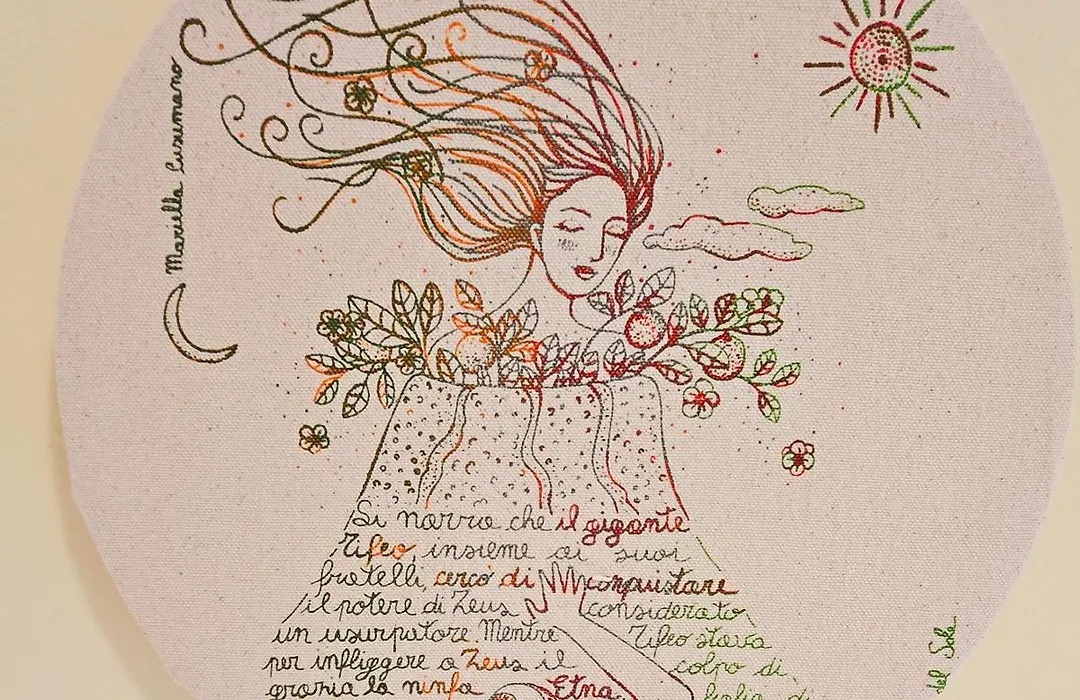 Mariella Cusumano
Si narra che il gigante
Tifeo, insieme ai suoi
fratelli, cercò di conquistare
il potere di Zeus considerato
un usurpatore. Mentre Tifeo stava
per infliggere a Zeus il colpo di
grazia la ninfa Etna, figlia di
del Sole